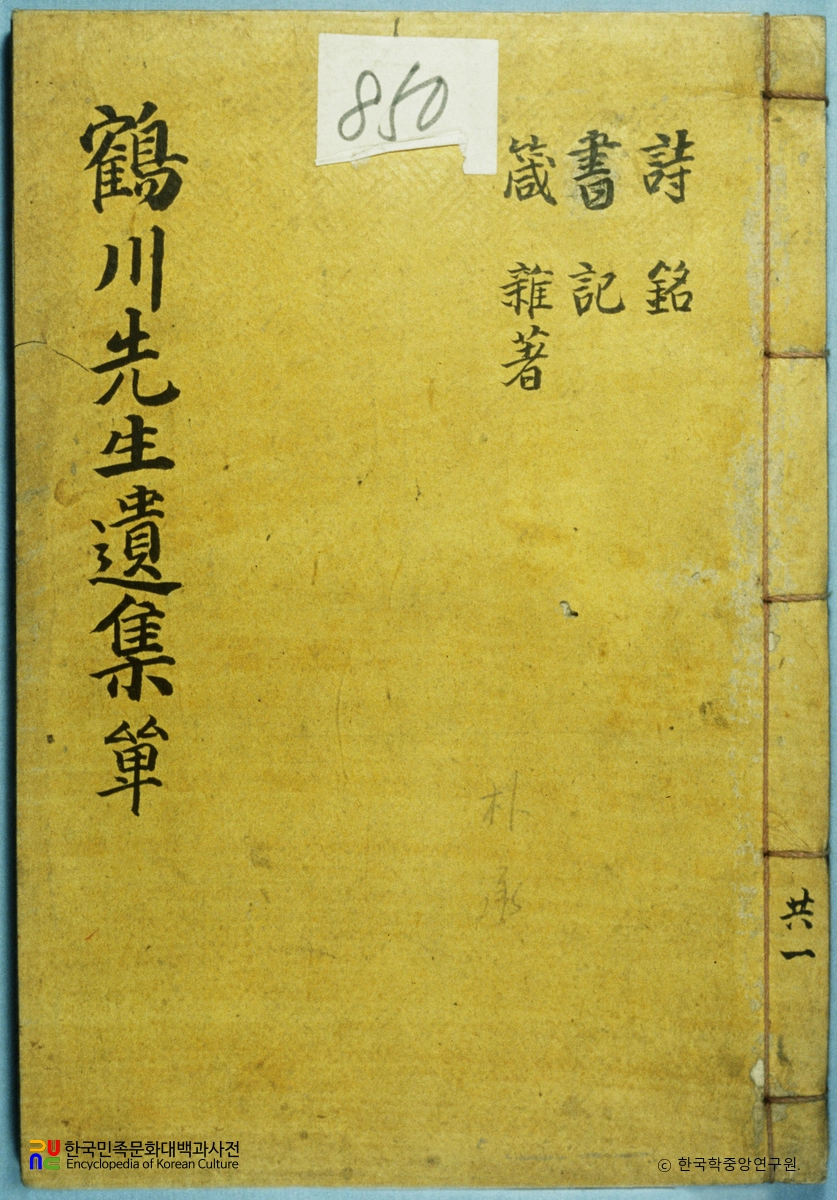 850
詩 銘
書 記
箴 雜著
鶴川先生遺集單
朴
共一
한국민족문화대백과사전
Encyclopedia of Korean Culture
ⓒ 한국학중앙연구원.